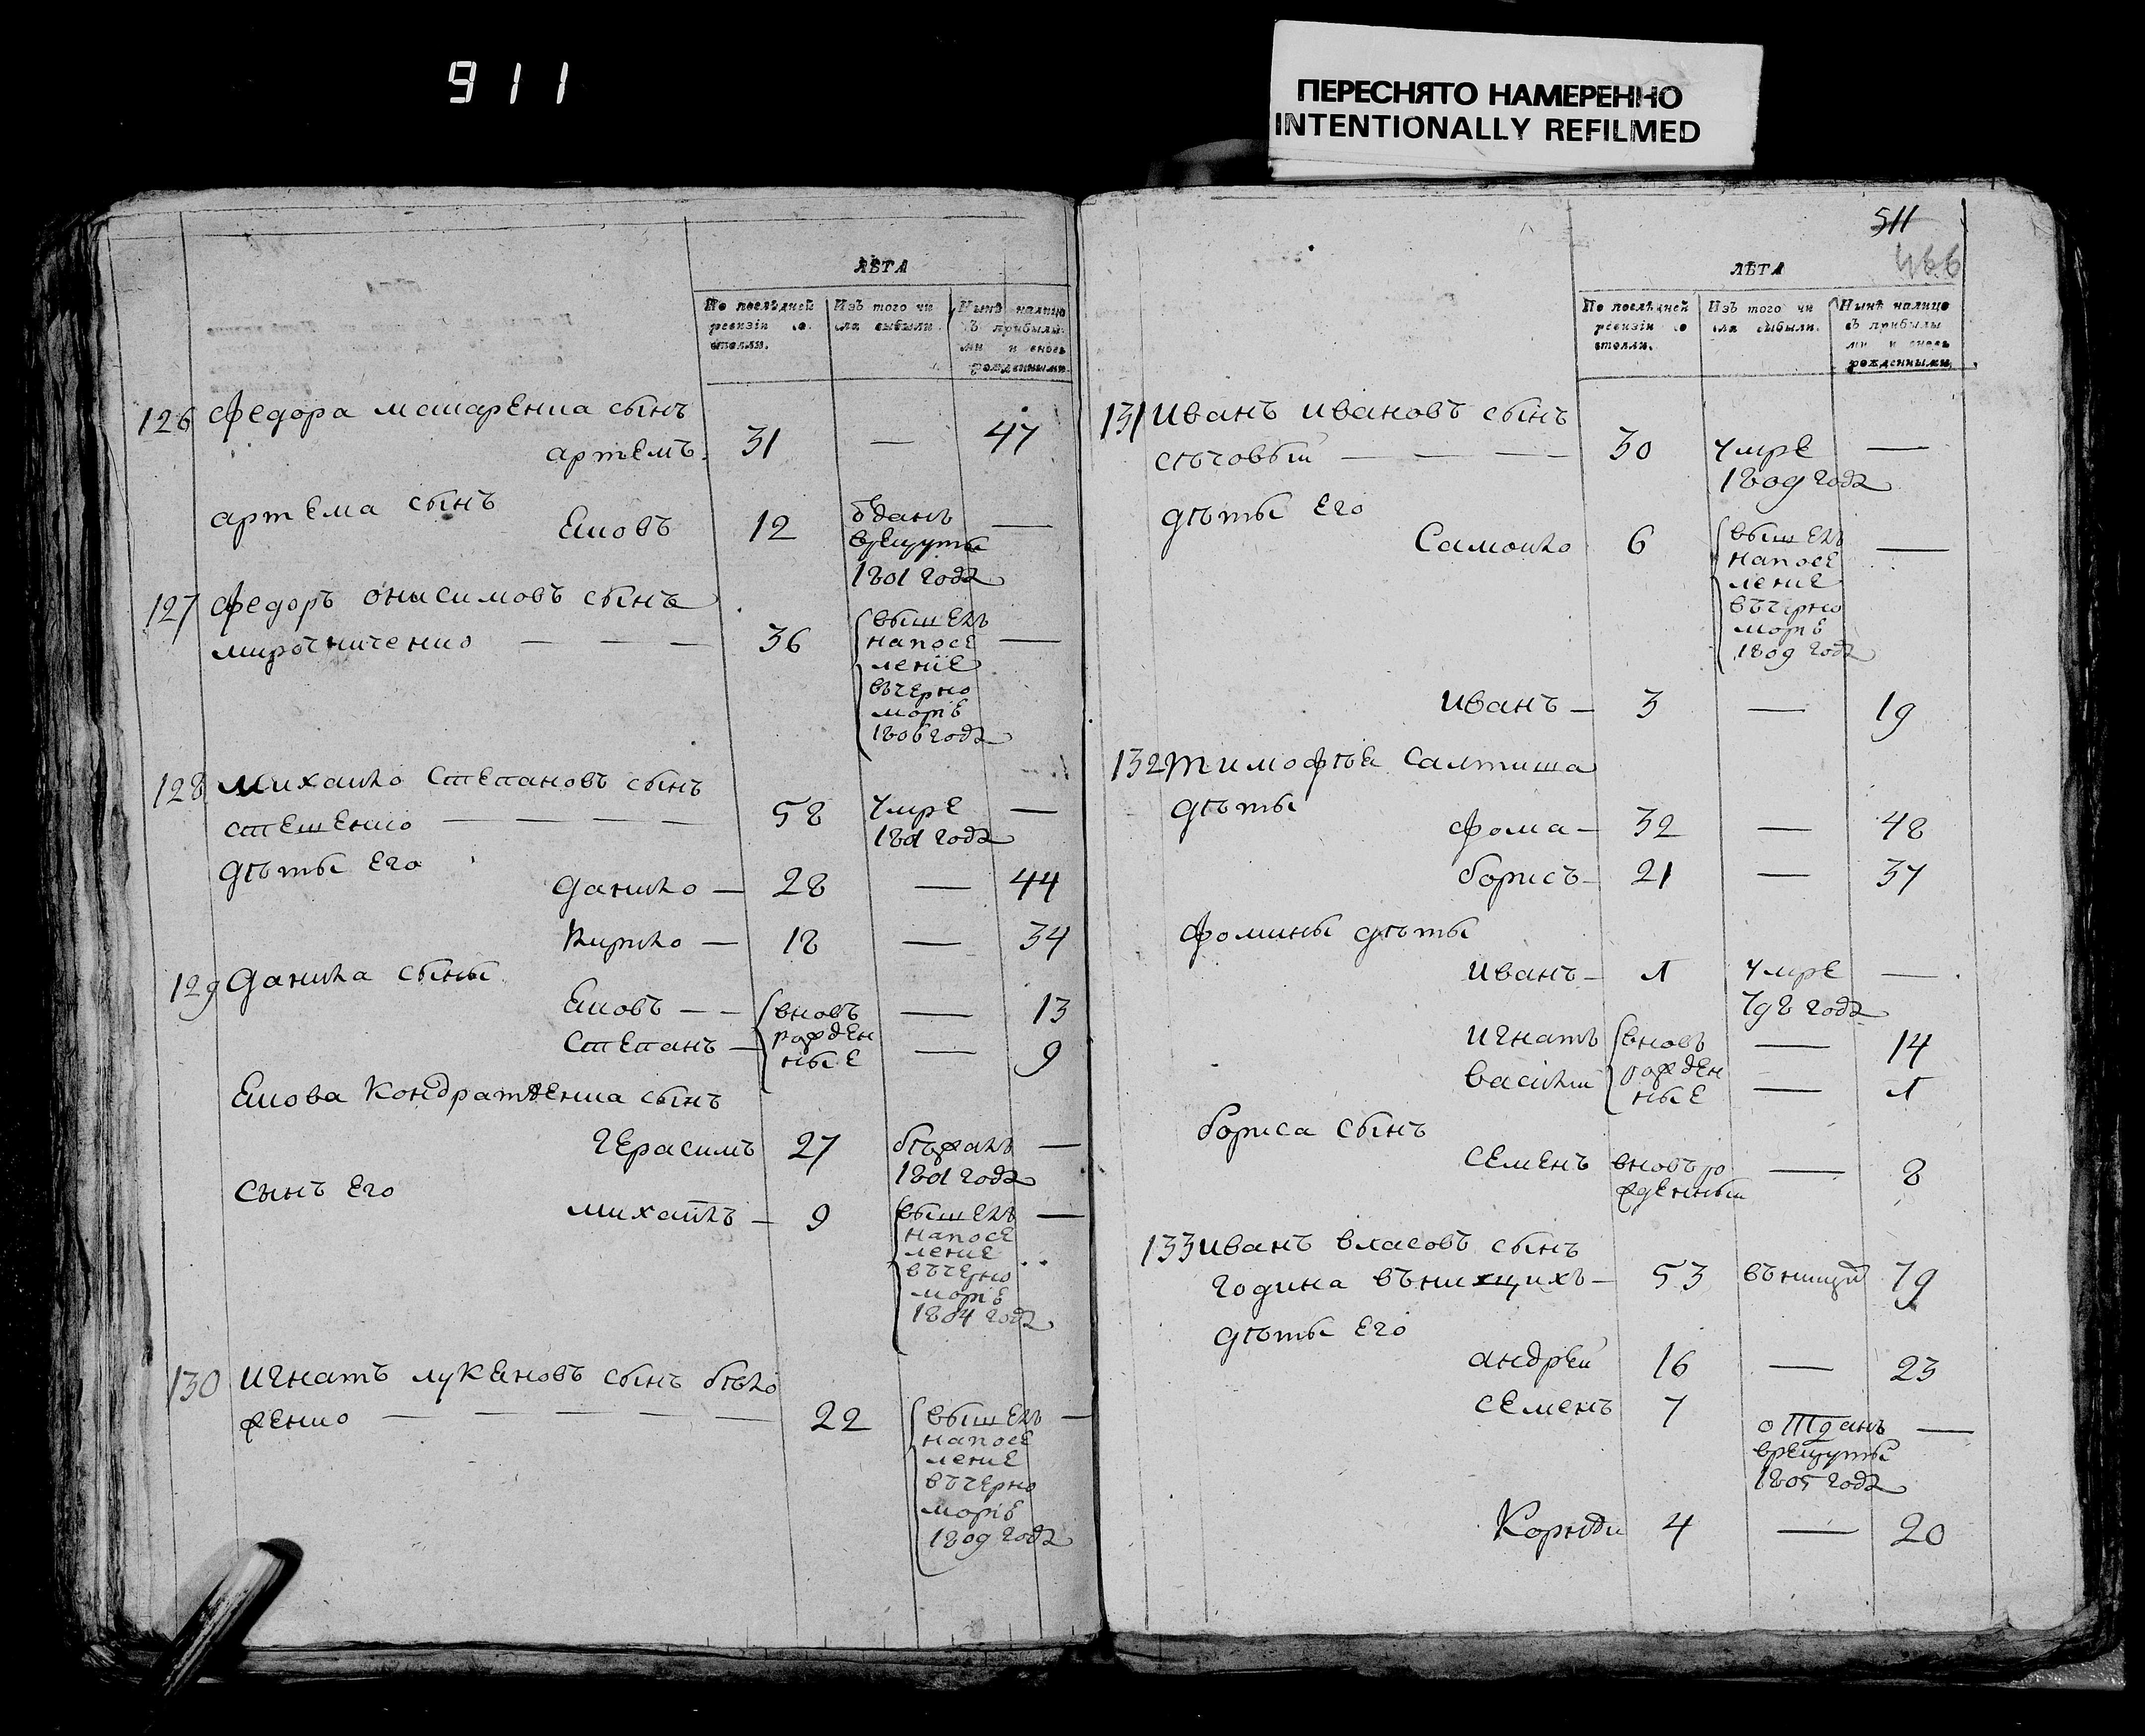 911
ПЕРЕСНЯТО НАМЕРЕННО
INTENTIONALLY REFILMED
ЛѢТА
По послѣдней ревизіи со стояли.
Изъ того чи сла выбыли.
Нынѣ налицо съ прибылы ми и вновь рожденными.
126 Федора макаренка сынъ
артемъ. 31 — 47
артема сынъ
Яковъ 12 одданъ —
врекруты
1801 года
127 Федоръ онисимовъ сынъ
мирочниченко — — — 36 вышелъ —
напосе
леніе
вѣчерно
моріѣ
1806 года
128 Михайло Степановъ сынъ
стешенко — — — — 58 Умре —
1801 года
дѣты Его
Данило — 28 — 44
Кирило — 18 — 34
129 Данила сыны
Яковъ — — вновъ — 13
Степанъ — рожден — 9
ные
Якова Кондратенка сынъ
Герасимъ 27 бѣжалъ —
1801 года
Сынъ Его
михаилъ — 9 вышелъ —
напосе
ление
вѣчерно
моріѣ
1804 года
130 Игнатъ лукяновъ сынъ бѣло
женко — — — — — 22 вышелъ —
напосе
ление
вѣчерно
моріѣ
1809 года
511
466
ЛѢТА
По послѣдней ревизіи со стояли.
Изъ того чи сла выбыли.
Нынѣ налицо съ прибылы ми и вновь рожденными.
131 Иванъ ивановъ сынъ
сѣчовый — — — 30 Умре —
1809 года
дѣты Его
Самойло 6 вышелъ —
напосе
ление
вѣчерно
моріѣ
1809 года
Иванъ — 3 — 19
132 Тимофѣя Салтиша
дѣты
Фома — 32 — 48
борисъ — 21 — 37
Фомины дѣты
Иванъ — 1 Умре —
798 года
Игнатъ вновъ — 14
василий рожден — 1
ные
бориса сынъ
семенъ вновъ ро — 8
жденный
133 Иванъ власовъ сынъ
година въ нищихъ — 53 въ нищи 79
дѣты Его
андрей 16 — 23
семенъ 7 отданъ —
врекруты
1805 года
Корнѣй 4 — 20